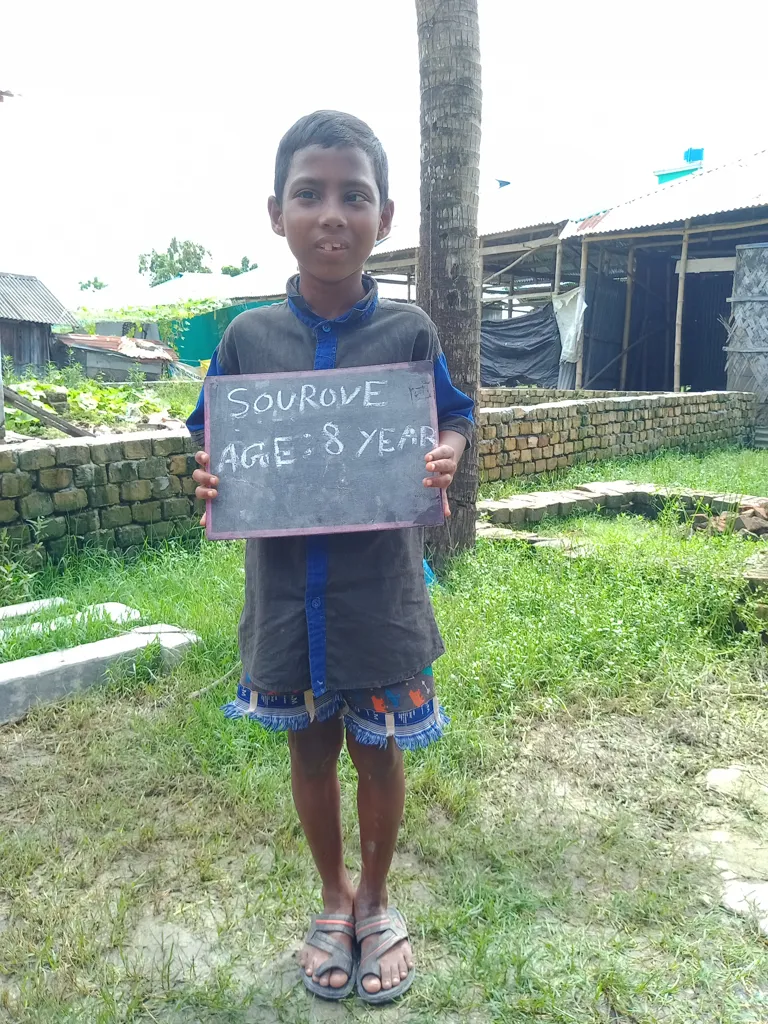 SOUROVE
AGE: 8 YEAR